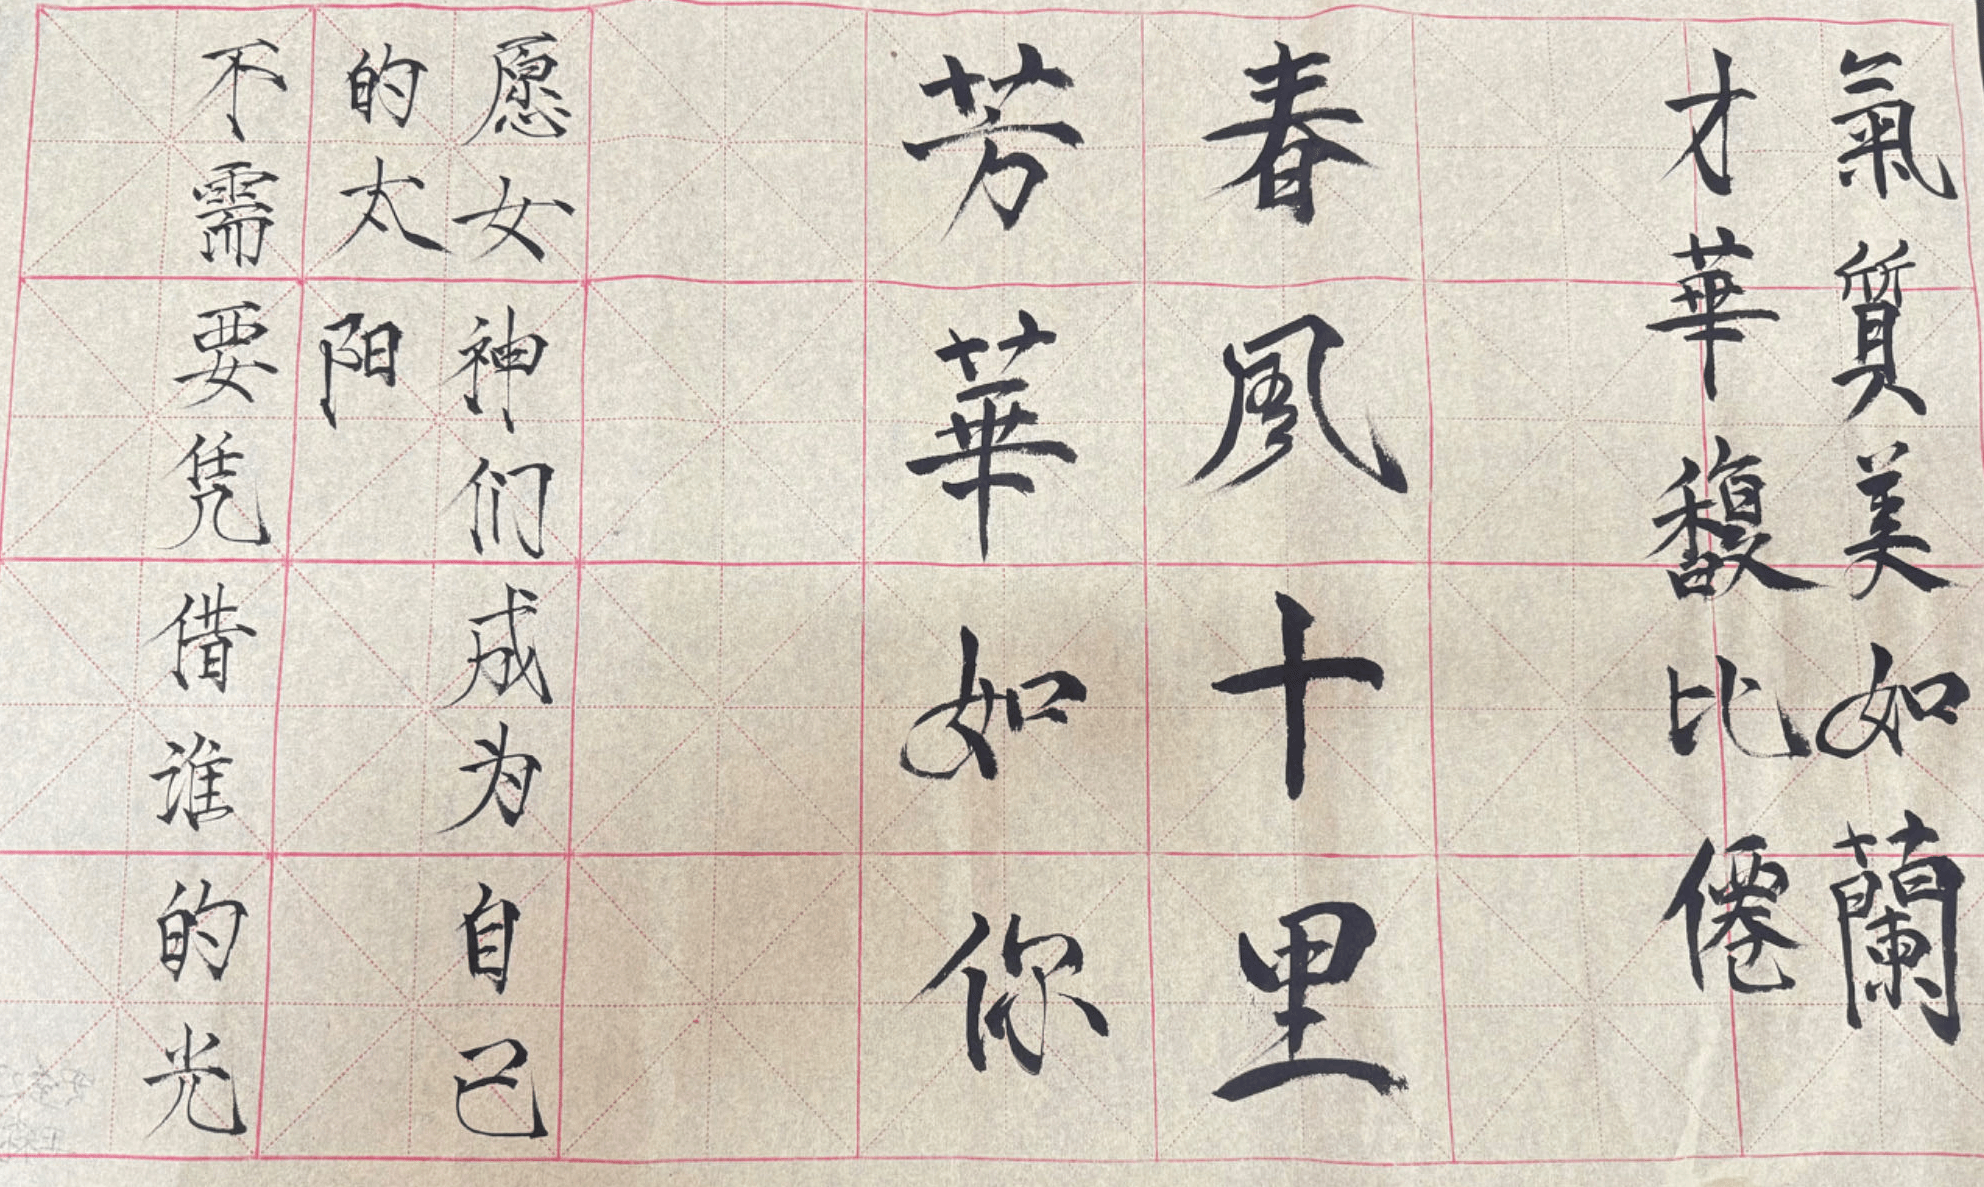 氣質美如蘭
才華馥比僊
春風十里
芳華如你
愿女神们成为自己
的太阳
不需要凭借谁的光